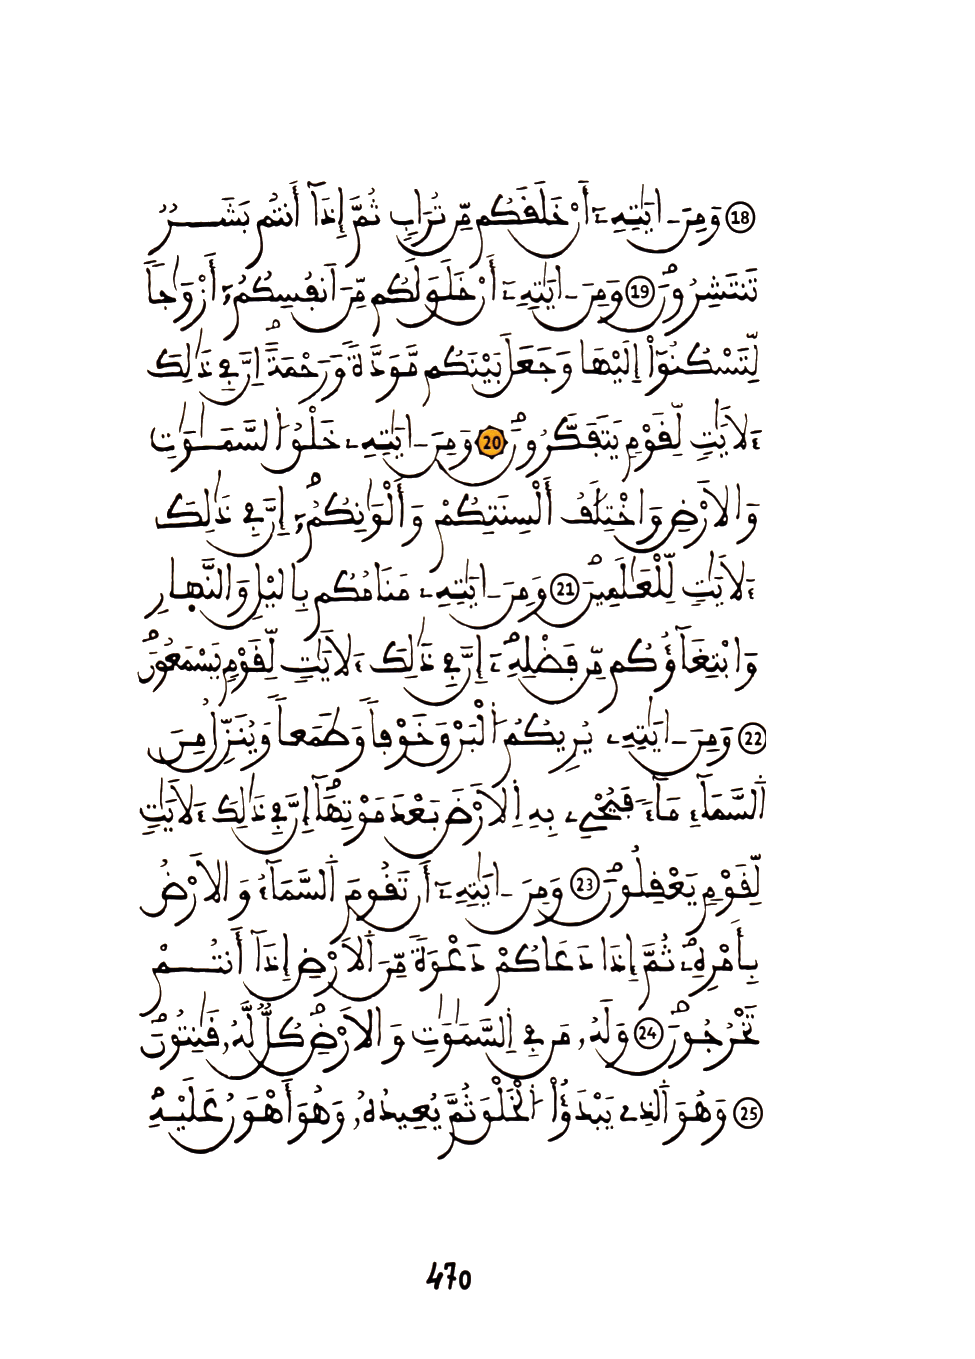 (18) وَمِنَ ايَٰتِهِۦٓ أَنْ خَلَقَكُم مِّن تُرَابٖ ثُمَّ إِذَآ أَنتُم بَشَرٞ
تَنتَشِرُونَۖ (19) وَمِنَ ايَٰتِهِۦٓ أَنْ خَلَقَ لَكُم مِّنَ اَنفُسِكُمُۥٓ أَزْوَٰجاٗ
لِّتَسْكُنُوٓاْ إِلَيْهَا وَجَعَلَ بَيْنَكُم مَّوَدَّةٗ وَرَحْمَةًۖ اِنَّ فِے ذَٰلِكَ
ءَلَايَٰتٖ لِّقَوْمٖ يَتَفَكَّرُونَۖ (20) وَمِنَ ايَٰتِهِۦ خَلْقُ السَّمَٰوَٰتِ
وَالَارْضِ وَاخْتِلَٰفُ أَلْسِنَتِكُمْ وَأَلْوَٰنِكُمُۥٓۖ إِنَّ فِے ذَٰلِكَ
ءَلَايَٰتٖ لِّلْعَٰلَمِينَۖ (21) وَمِنَ ايَٰتِهِۦ مَنَامُكُم بِاليْلِ وَالنَّهارِ
وَابْتِغَآؤُكُم مِّن فَضْلِهِۦٓۖ إِنَّ فِے ذَٰلِكَ ءَلَايَٰتٖ لِّقَوْمٖ يَسْمَعُونَۖ
(22) وَمِنَ ايَٰتِهِۦ يُرِيكُمُ اُلْبَرْقَ خَوْفاٗ وَطَمَعاٗ وَيُنَزِّلُ مِنَ
اَلسَّمَآءِ مَآءٗ فَيُحْيِۦ بِهِ اِلَارْضَ بَعْدَ مَوْتِهَآۖ إِنَّ فِے ذَٰلِكَ ءَلَايَٰتٖ
لِّقَوْمٖ يَعْقِلُونَۖ (23) وَمِنَ ايَٰتِهِۦٓ أَن تَقُومَ اَلسَّمَآءُ وَالَارْضُ
بِأَمْرِهِۦۖ ثُمَّ إِذَا دَعَاكُمْ دَعْوَةٗ مِّنَ اَلَارْضِ إِذَآ أَنتُمْ
تَخْرُجُونَۖ (24) وَلَهُۥ مَن فِے اِلسَّمَٰوَٰتِ وَالَارْضِۖ كُلّٞ لَّهُۥ قَٰنِتُونَۖ
(25) وَهُوَ اَلذِے يَبْدَؤُاْ اُلْخَلْقَ ثُمَّ يُعِيدُهُۥ وَهُوَ أَهْوَنُ عَلَيْهِۖ
470